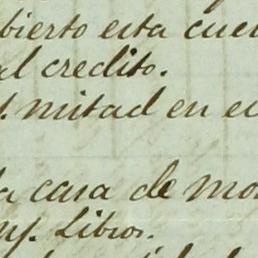 bierto esta cue
al credito.
mitad en e
la casa de mo
Libros.